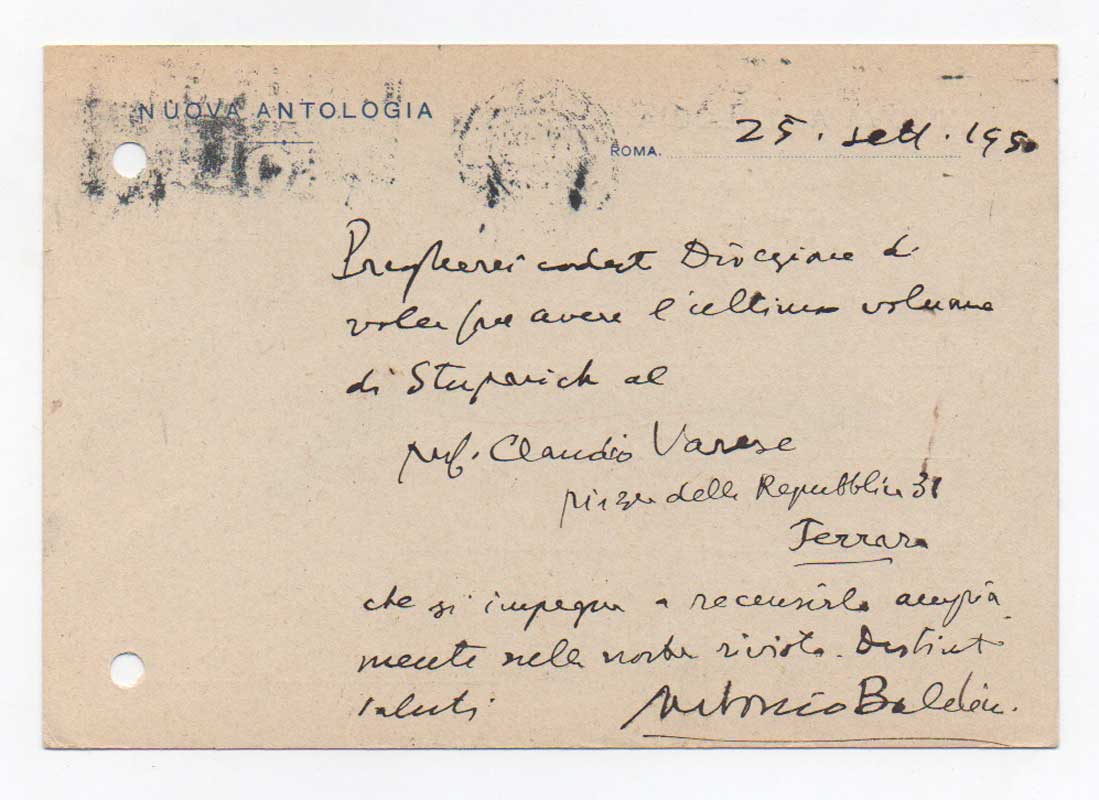 NUOVA ANTOLOGIA
ROMA. 25. sett. 1950
Pregherei codest Direzione di
voler fare avere l'ultimo volume
di Stuparich al
prof. Claudio Varese
piazza della Repubblica 31
Ferrara
che si impegna a recensirlo ampia
mente nella nostra rivista. Distinti
saluti Antonio Baldini.